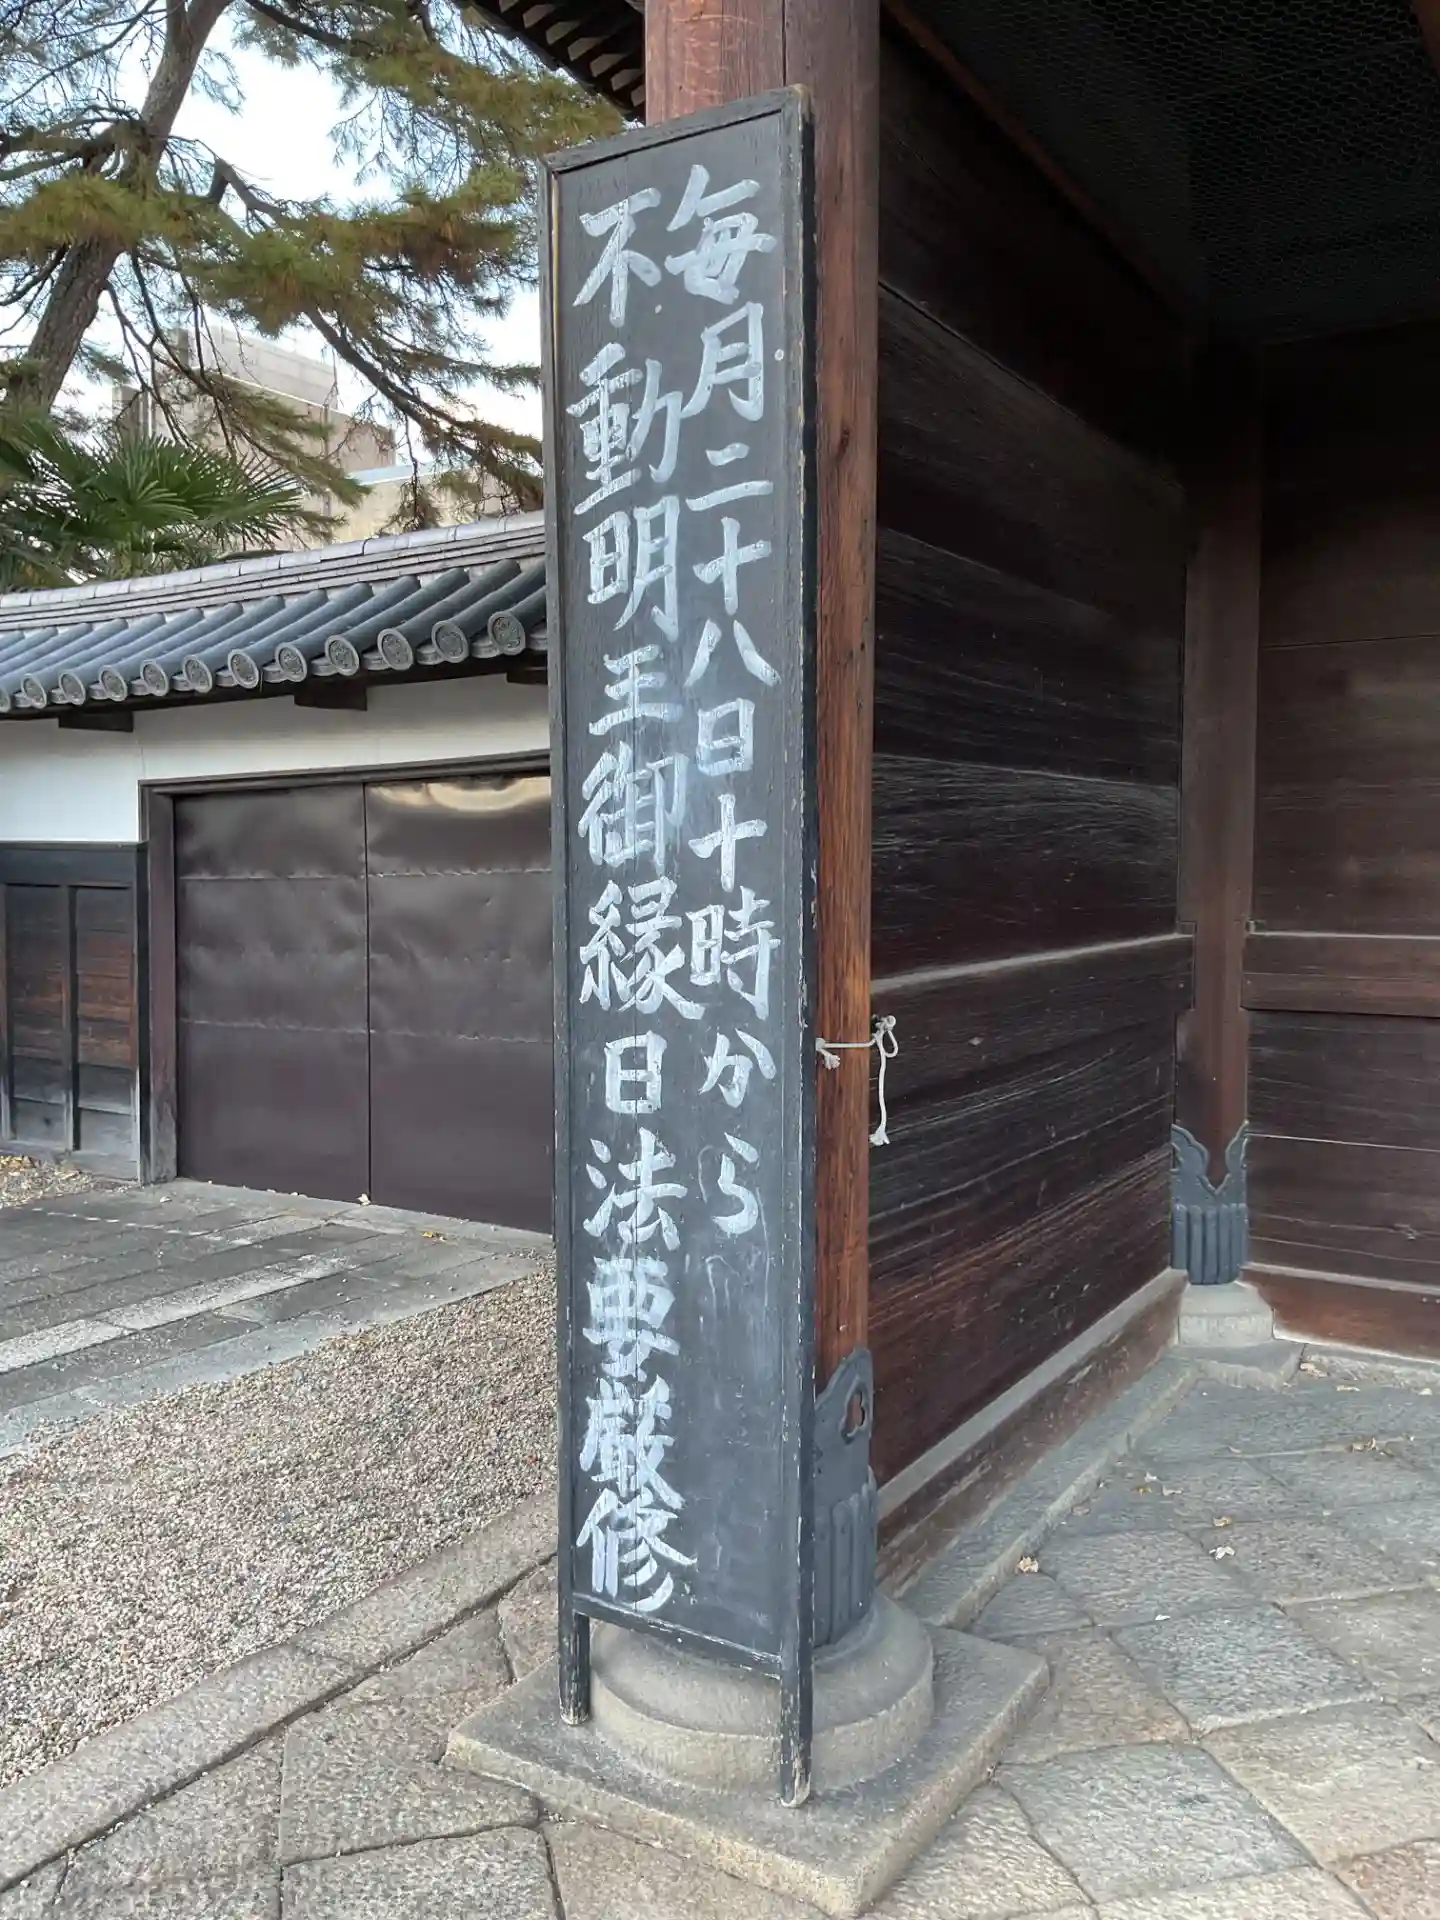 毎月二十八日十時から
不動明王御縁日法要厳修